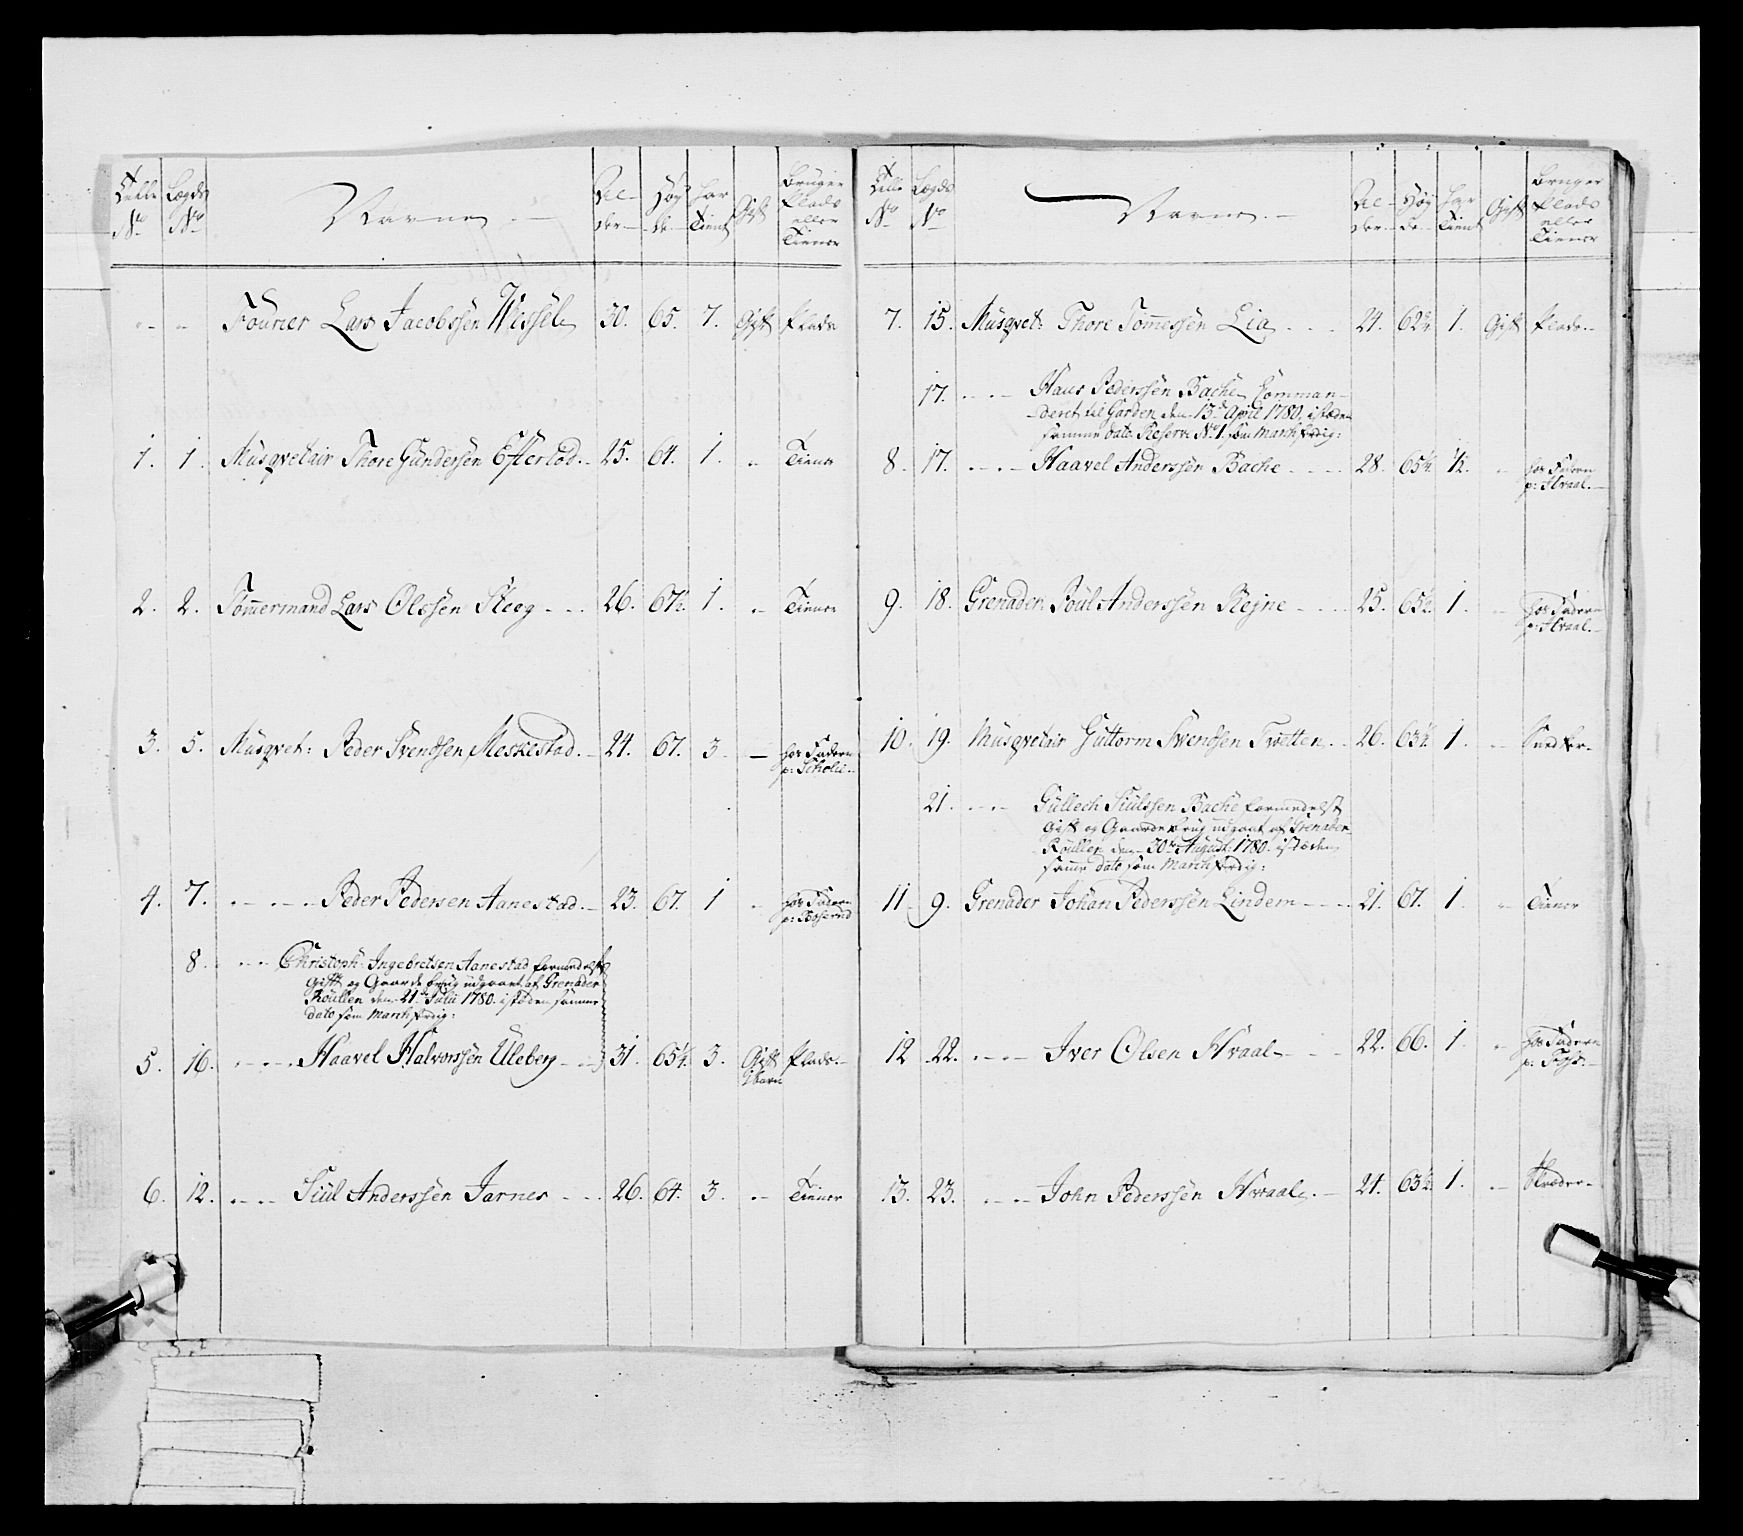 Telle Lægds Navne Al- Høy har Gift Bruger
No No der de Tient Plads
eller
Tiener
" " Fourier Lars Jacobssen Wessel 30. 65. 7. Gift Plads
1. 1. Musqvetair Thore Gundersen Efterlod 25. 64. 1. " Tiener
2. 2. Tømmermand Lars Olssen Skog 26. 67½. 1. " Tiener
3. 5. Musqvet: Peder Svendsen Meskestad 24. 67. 3. — hos Faderen
p: Scholie
4. 7. Peder Pedersen Aanestad 23. 67. 1 " hos Faderen
p:
8. Christoph: Ingebretsen Aanestad formedelst
gift og Gaarde brug udgaaet af Grenader
Roullen den 21de Julii 1780. i steden samme
dato som Marchfærdig:
5. 16. Haavel Halvorssen Uleberg 31. 65¼. 3. Gift Plads
Barn
6. 12. Siul Anderssen Jarnes 26. 64. 3. " Tiener
Telle Lægds Navne Al- Høy har Gift Bruger
No No der de Tient Plads
eller
Tiener
7. 15. Musqvet: Thore Tommessen Lia 24. 62½ 1. Gift Plads
17. Hans Pederssen Bache Comman-
deret til Garden den 13de April 1780. i steden
samme dato Reserve No 1. som Marchfærdig:
8. 17. Haavel Anderssen Bache 28. 65¼. ½. " hos Faderen
p: Hvaal
9. 18. Grenader Poul Anderssen Rejne 25. 65½. 1. " hos Faderen
p: Hvaal
10. 19. Musqvetair Guttorm Svendsen Tvetten 26. 63½. 1. " Snedker
21. Gullech Siulssen Bache formedelst
gift og Gaarde brug udgaaet af Grenader
Roullen den 30te August 1780. i steden
samme dato som Marchfærdig:
11. 9. Grenader Johan Pederssen Lindem 21. 67. 1. " Tiener
12 22. Iver Olsen Hvaal 22. 66. 1. " hos Faderen
p:
13. 23. John Pederssen Hvaal 24. 63½. 1. " Skræder